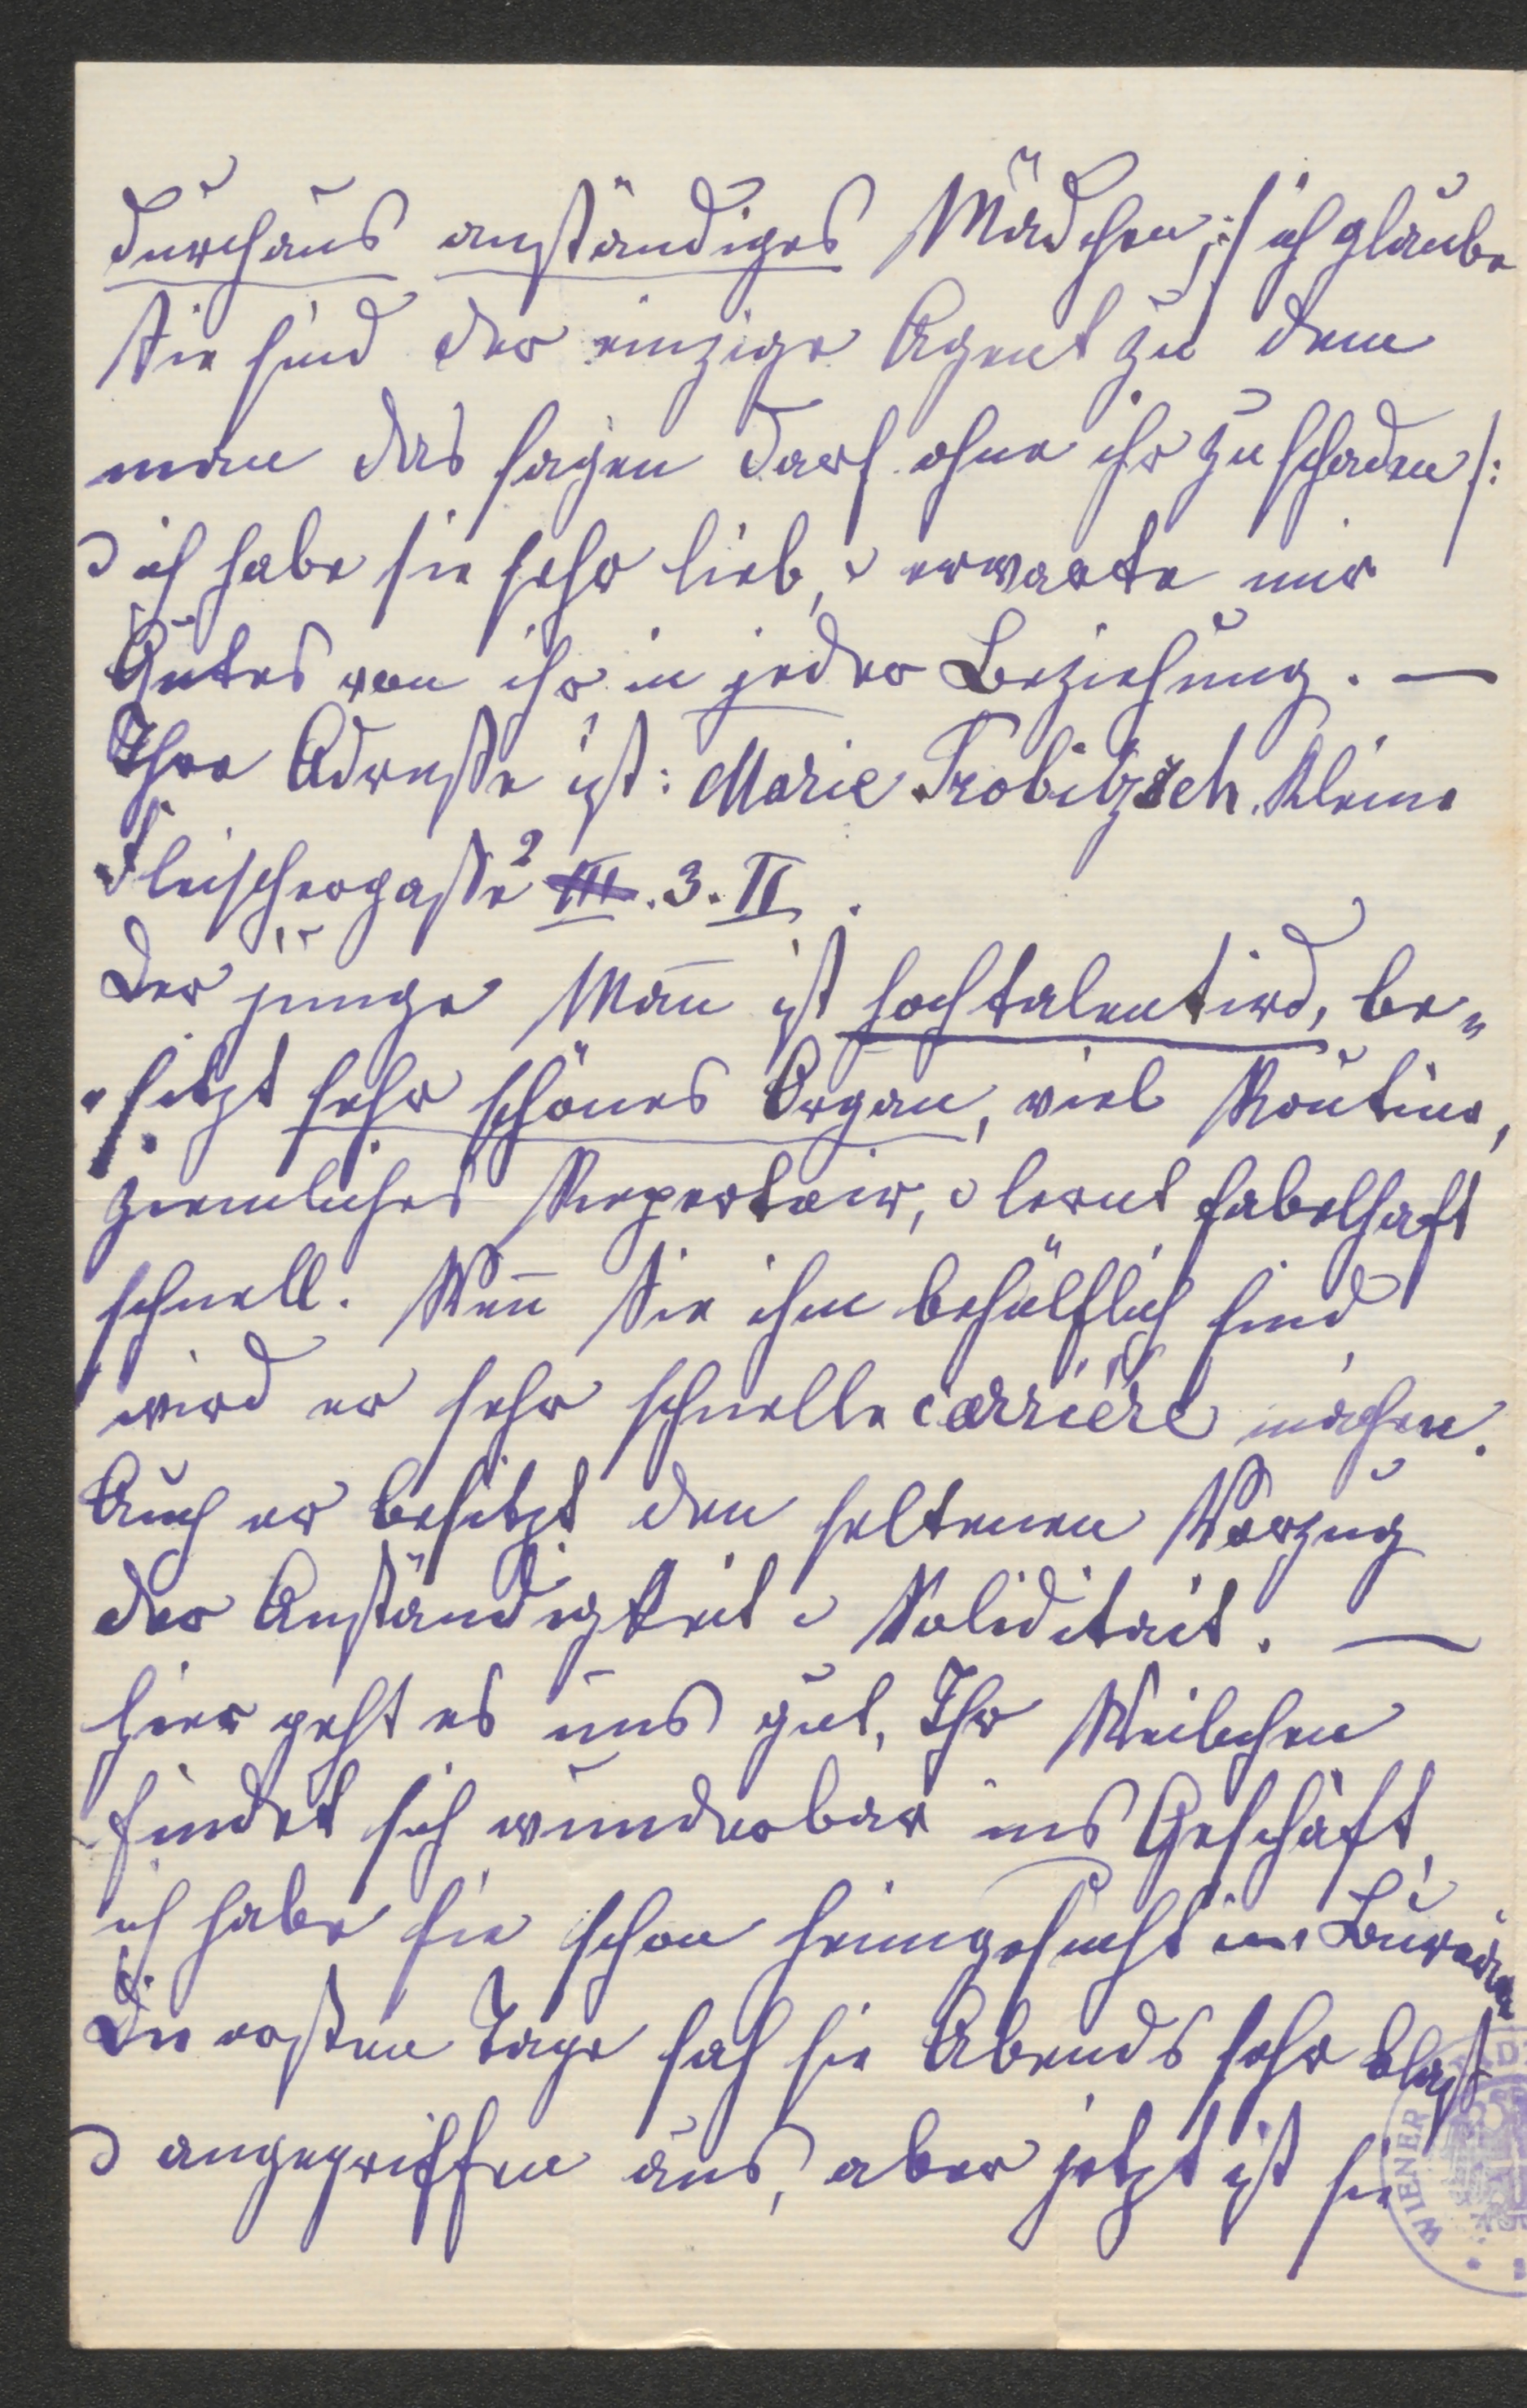 durchaus anständiges Mädchen, :/ ich glaube
Sie sind der einzige Agent zu dem
man das sagen darf ohne ihr zu schaden /:
u ich habe sie sehr lieb, u erwarte mir
Gutes von ihr in jeder Beziehung. —
Ihre Adresse ist: Marie Trobitzsch. Kleine
Fleischergasse 2 III. 3. II.
Der junge Mañ ist hochtalentird, be„
„sitzt sehr schönes Organ, viel Routine,
ziemliches Repertoir, u lernt fabelhaft
schnell. Weñ Sie ihm behülflich sind
wird er sehr schnelle carrière machen.
Auch er besitzt den seltenen Vorzug
der Anständigkeit u Solidität. —
Hier geht es uns gut, Ihr Weibchen
findet sich wunderbar ins Geschäft,
ich habe sie schon heimgesucht im Bureau
Die ersten Tage sah sie Abends sehr blaß
u angegriffen aus, aber jetzt ist sie
WIENER